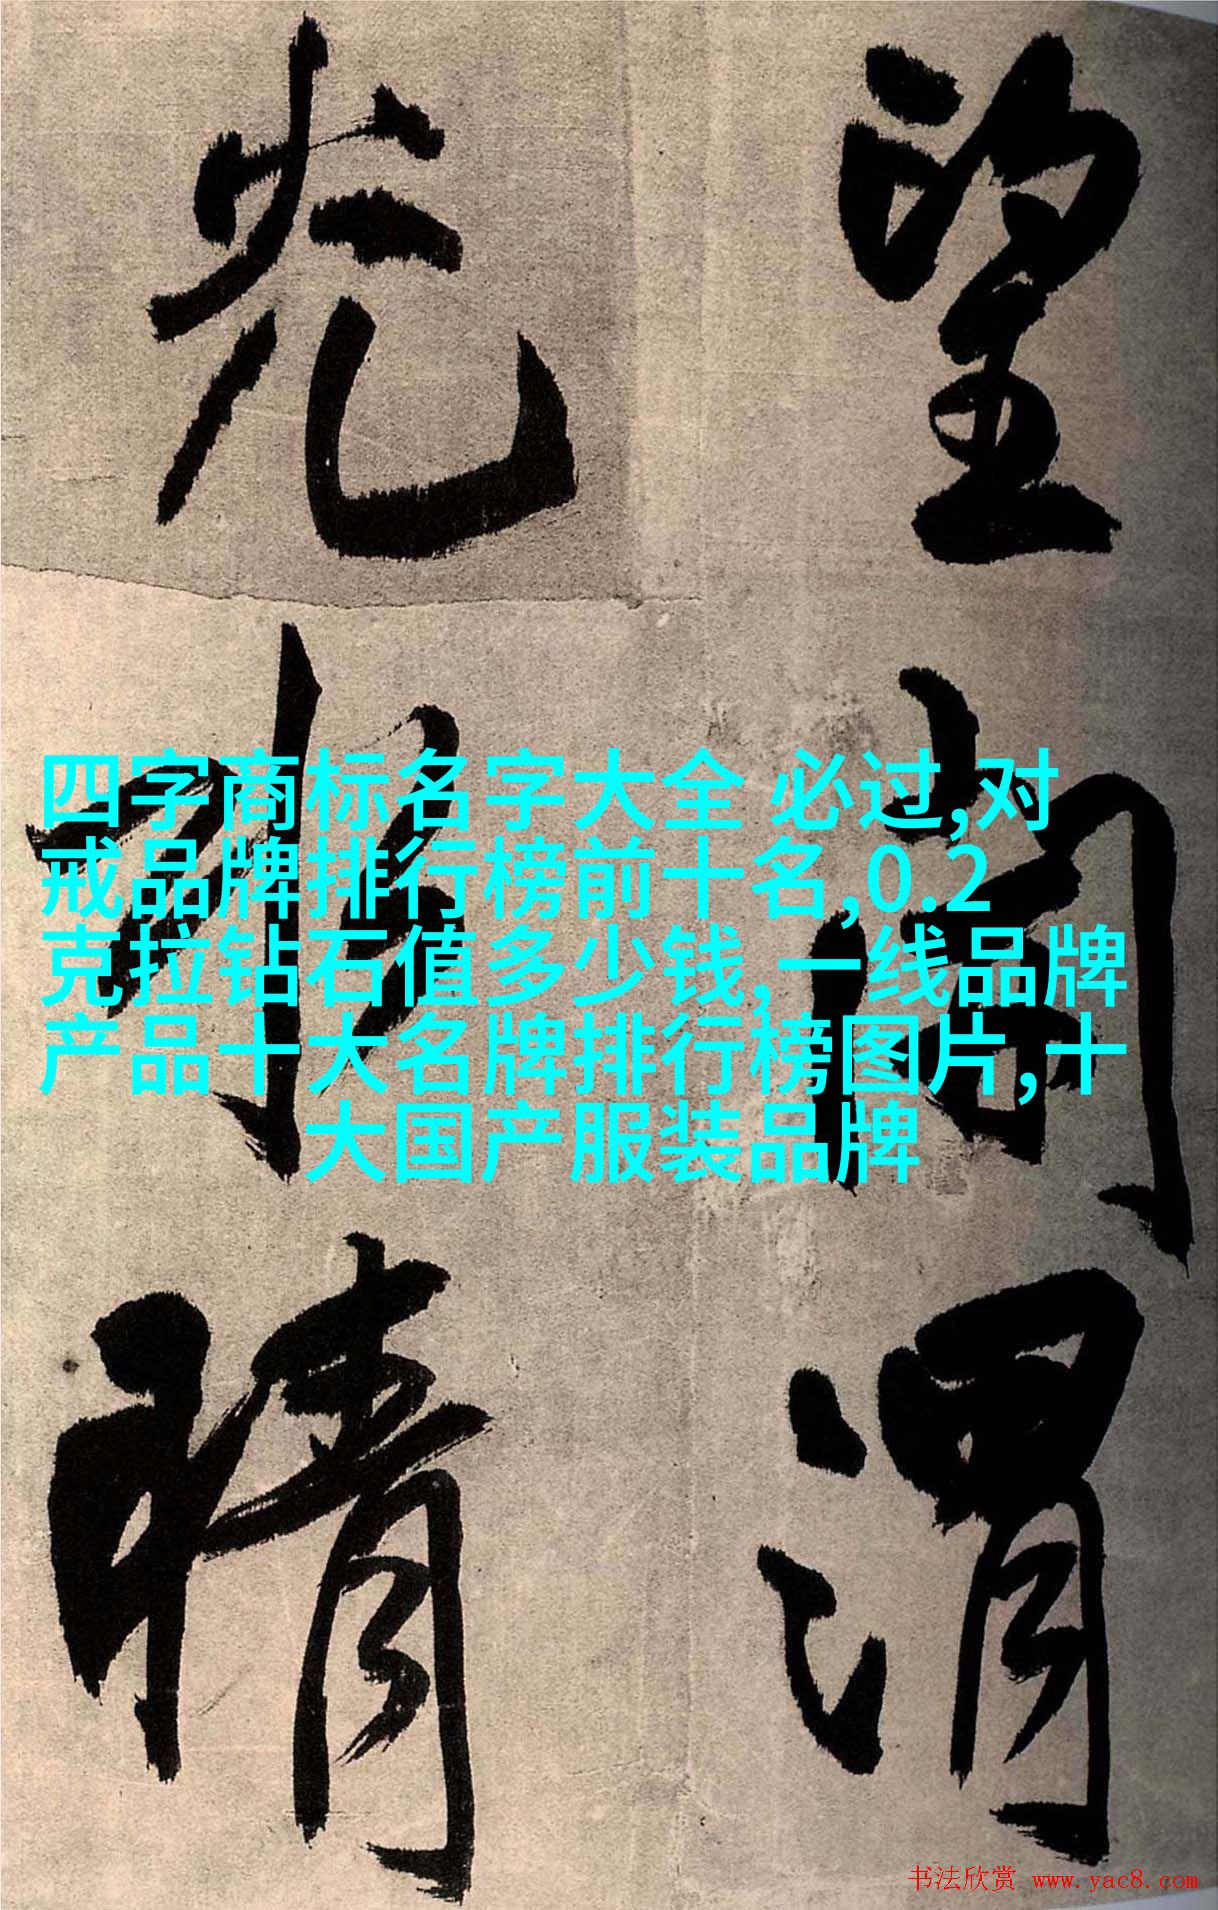 望
渭
光
晴
四字商标名字大全 必过,对
戒品牌排行榜前十名,0.2
克拉钻石值多少钱,一线品牌
产品十大名牌排行榜图片,十
大国产服装品牌
书法欣赏 www.yac8.com